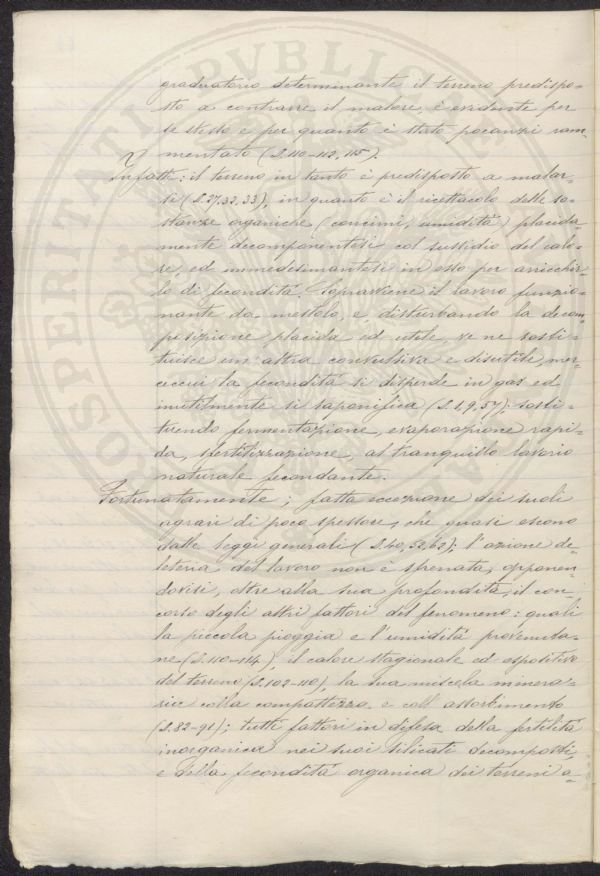 graduatorio determinante il terreno predispo-
sto a contrarre il malore, è evidente per
se stesso e per quanto è stato pocanzi ram-
mentato (S. 110-112, 115).
Infatti: il terreno in tanto è predisposto a malar-
si (S. 27, 32, 33), in quanto è il ricettacolo delle so-
stanze organiche (concimi, umidità) placida-
mente decomponentesi col sussidio del calo-
re, ed immedesimantesi in esso per arricchir
lo di fecondità. Sopravviene il lavoro funzio-
nante da mestolo, e disturbando la decom-
posizione placida ed utile, ve ne sosti-
tuisce un'altra convulsiva e disutile, mer-
cecui la fecondità si disperde in gas ed
inutilmente si saponifica (S. 1, 9, 57); sosti-
tuendo fermentazione, evaporazione rapi-
da, sfertilizzazione, al tranquillo lavorio
naturale fecondante.
Fortunatamente; fatta eccezione dei suoli
agrari di poco spessore, che quasi escono
dalle leggi generali (S. 40, 52, 62); l'azione de-
leteria del lavoro non è sfrenata, opponen-
dovisi, oltre alla sua profondità, il con-
corso degli altri fattori del fenomeno: quali
la piccola pioggia e l'umidità provenuta-
ne (S. 110-114), il calore stagionale ed espositivo
del terreno (S. 102-110), la sua miscela minera-
ria colla compattezza e coll'assorbimento
(S. 82-92); tutti fattori in difesa della fertilità
inorganica nei suoi silicati decomposti,
e della fecondità organica dei terreni a-
PROSPERITATI PVBLICAE